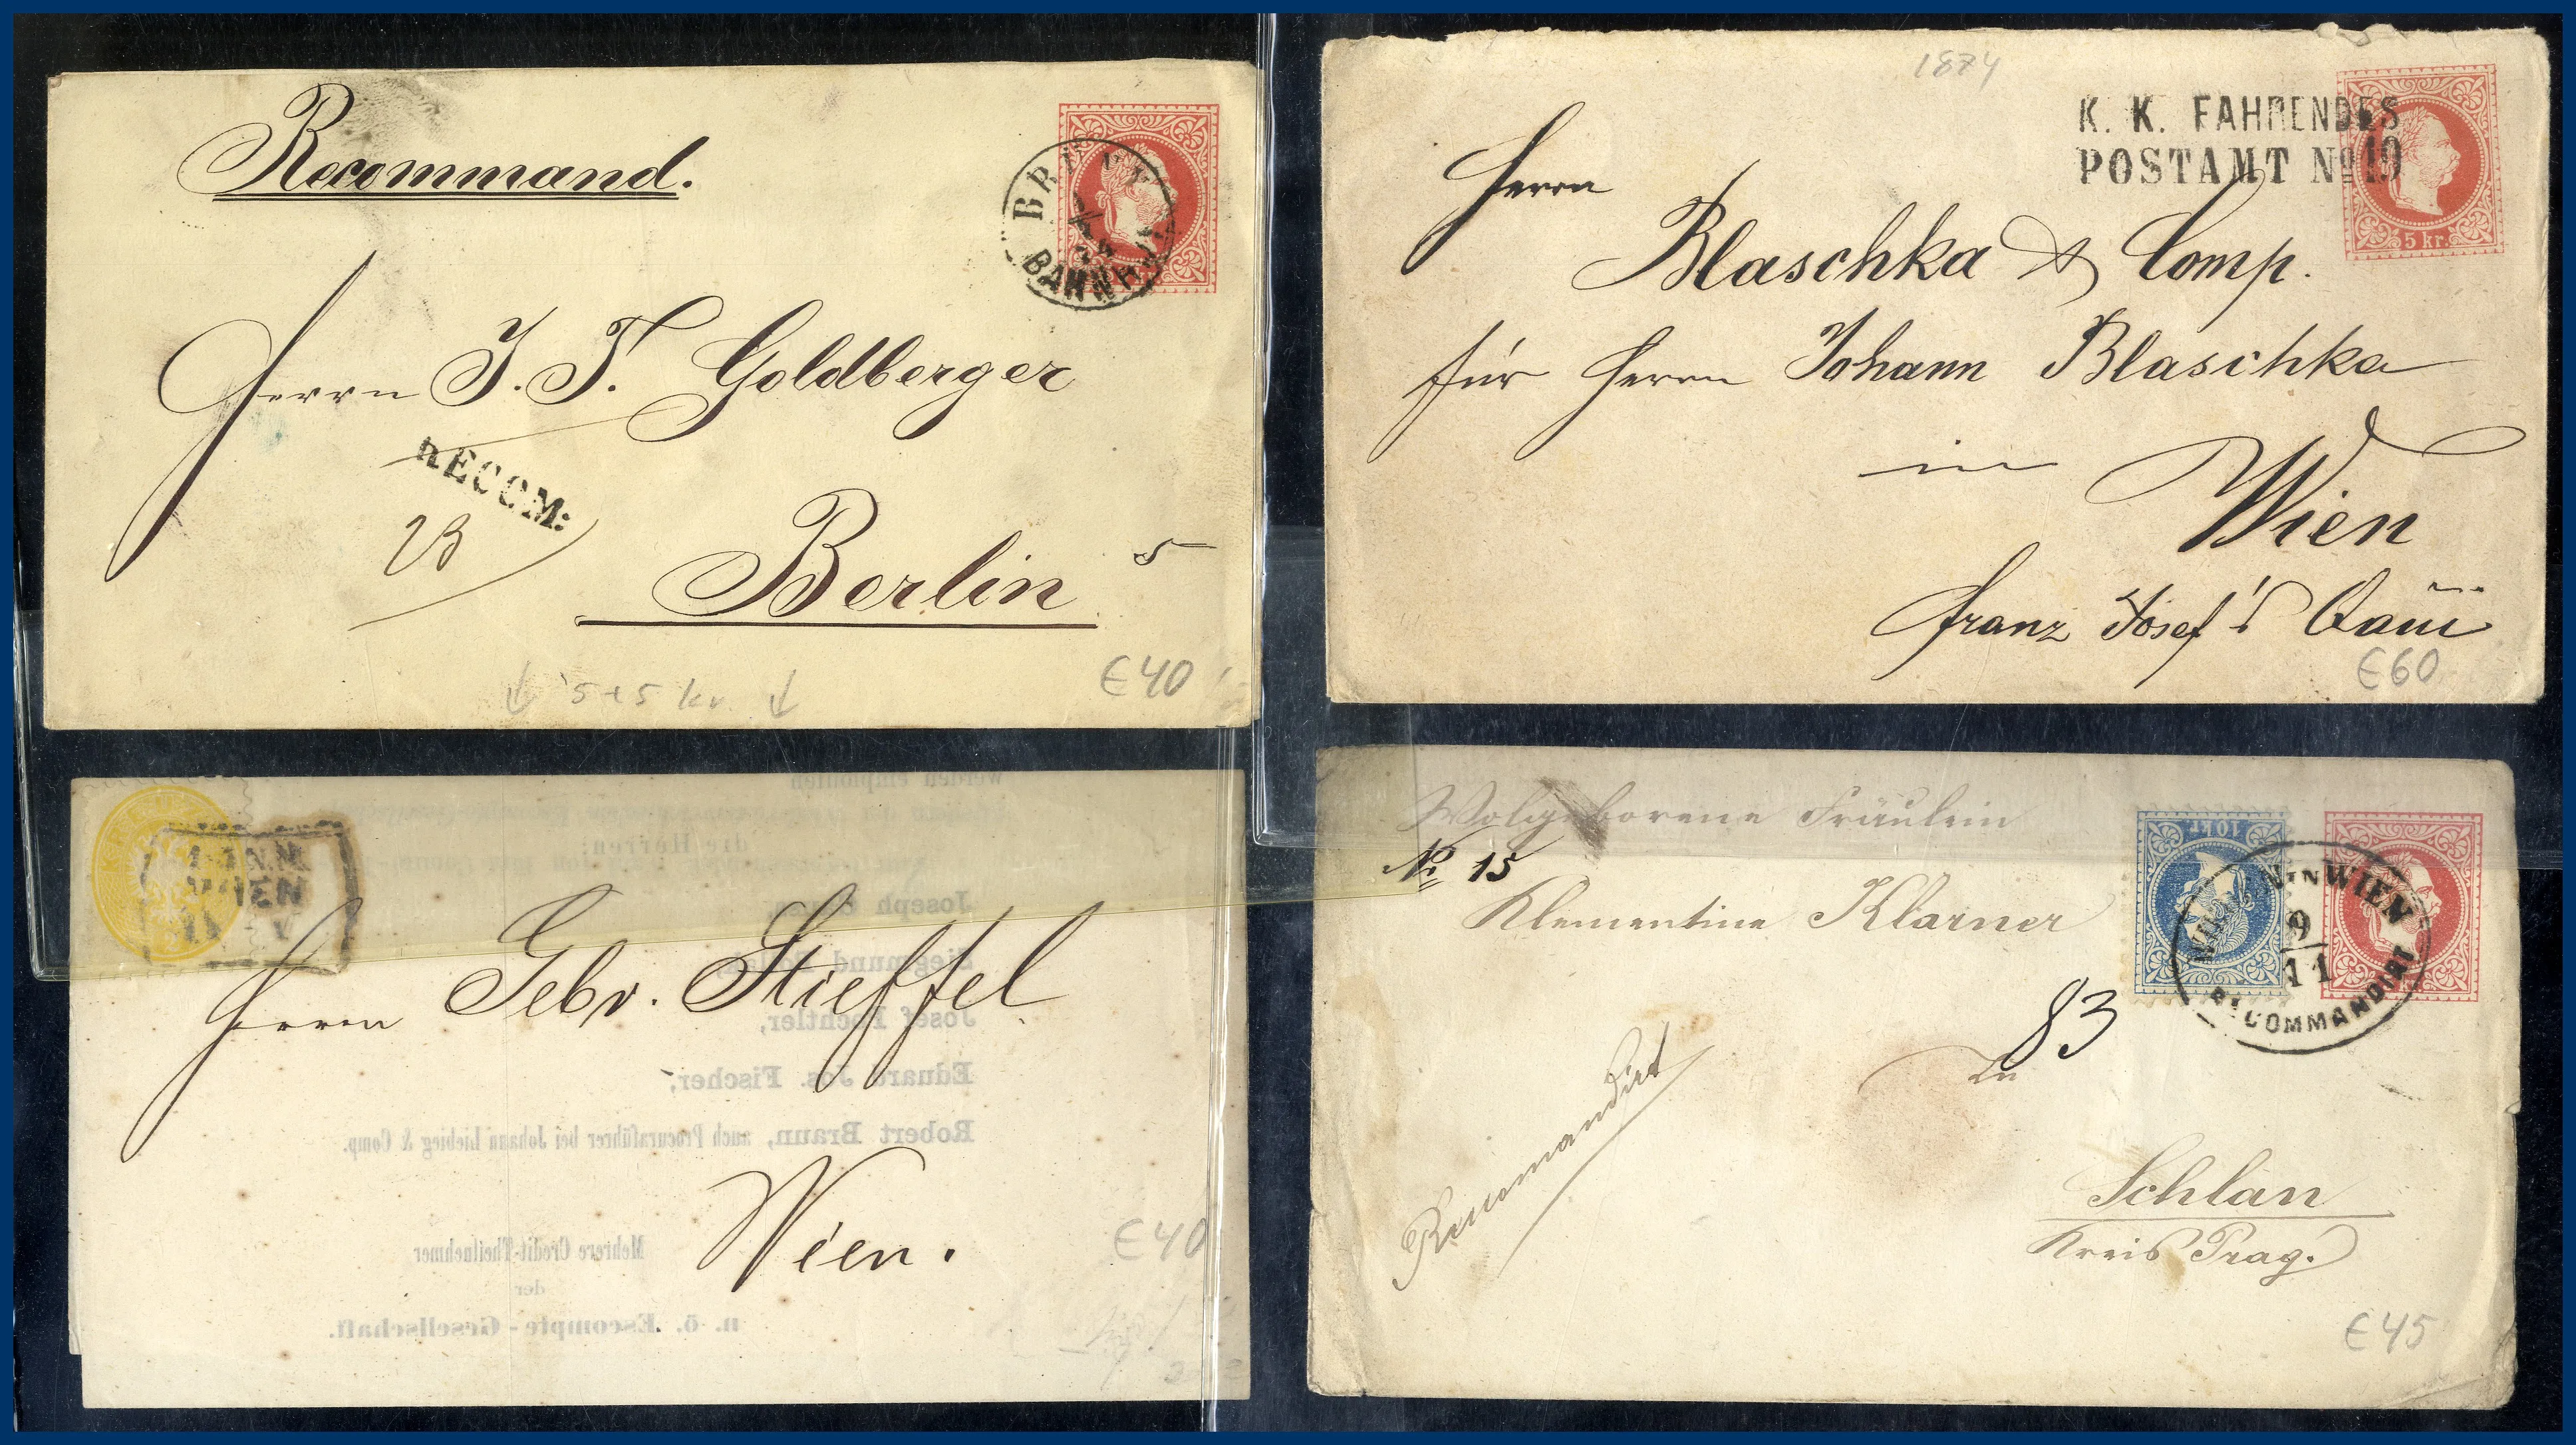 Recommand.
BRÜNN
BAHNHOF
Herrn J. T. Goldberger
RECOM:
23
Berlin
5
↓ 5+5 kr. ↓
€40
1874
K. K. FAHRENDES
POSTAMT No 19
5 kr.
Herrn
Blaschka & Comp.
für Herrn Johann Blaschka
in
Wien
Franz Josef's Quai
€60
WIEN
Herrn Gebr. Stieffel
Wien.
€40
werden empfohlen
die Herren:
Joseph
Siegmund
Josef
Eduard Jos. Fischer,
Robert Braun, auch Procuraführer bei Johann Liebieg & Comp.
Mehrere Credit-Theilnehmer
der
n. ö. Escompte-Gesellschaft.
Wolgeborene Fräulein
No 15
Klementine Klarner
10 kr.
WIEN
9
11
RECOMMANDIRT
83
in
Recommandirt
Schlan
Kreis Prag.
€45